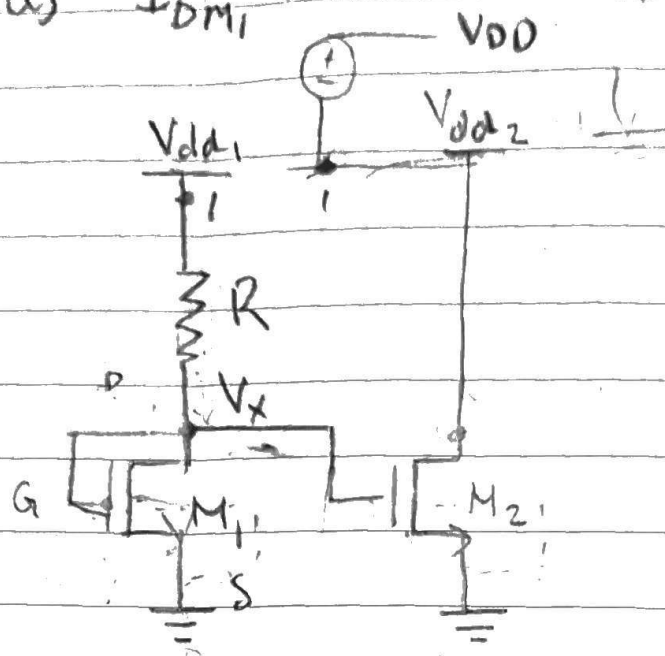 I_DM1
VDD
Vdd1
Vdd2
1
1
R
D
Vx
G
M1
M2
S